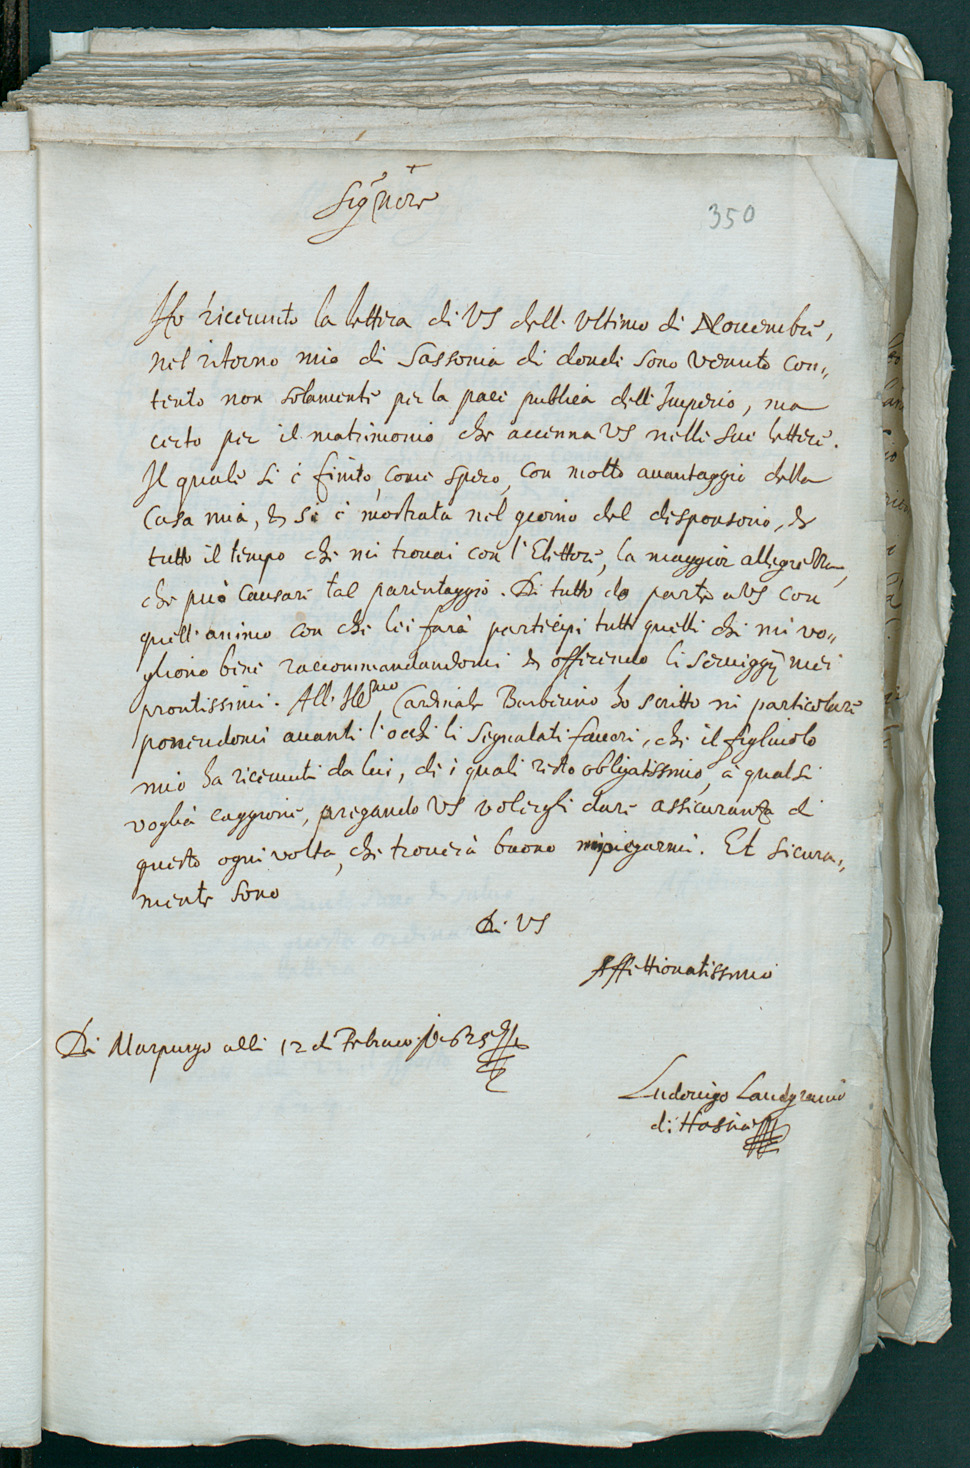 Sig.nore
350
Ho riceuuto la lettera di VS dell' Vltimo di Nouembre,
nel ritorno mio di Sassonia di donde sono venuto con„
tento non solamente per la pace publica dell' Imperio, ma
certo per il matrimonio che accenna VS nelle sue lettere.
Il quale si è finito, come spero, con molto auantaggio della
Casa mia, & si è mostrata nel giorno del disponsorio, &
tutto il tempo che mi trouai con l'Elettore, la maggior allegrezza,
che può causare tal parentaggio. Di tutto do parte a VS con
quell' animo con che lei farà partecipi tutti quelli che mi vo„
gliono bene raccommandandomi & offerendo li seruiggij miei
prontissimi. All' Ill.mo Cardinale Barberino ho scritto in particolare
ponendomi auanti l'occhi li segnalati fauori, che il figliuolo
mio ha riceuuti da lui, di i quali resto obligatissimo, à qualsi
voglia caggione, pregando VS volergli dare assicuranza di
questo ogni volta, che trouerà buono impiegarmi. Et sicura„
mente sono
Di VS
Affettionatissimo
Di Marpurgo alli 12 di Febraro 1625
Ludouigo Landgrauio
di Hassia